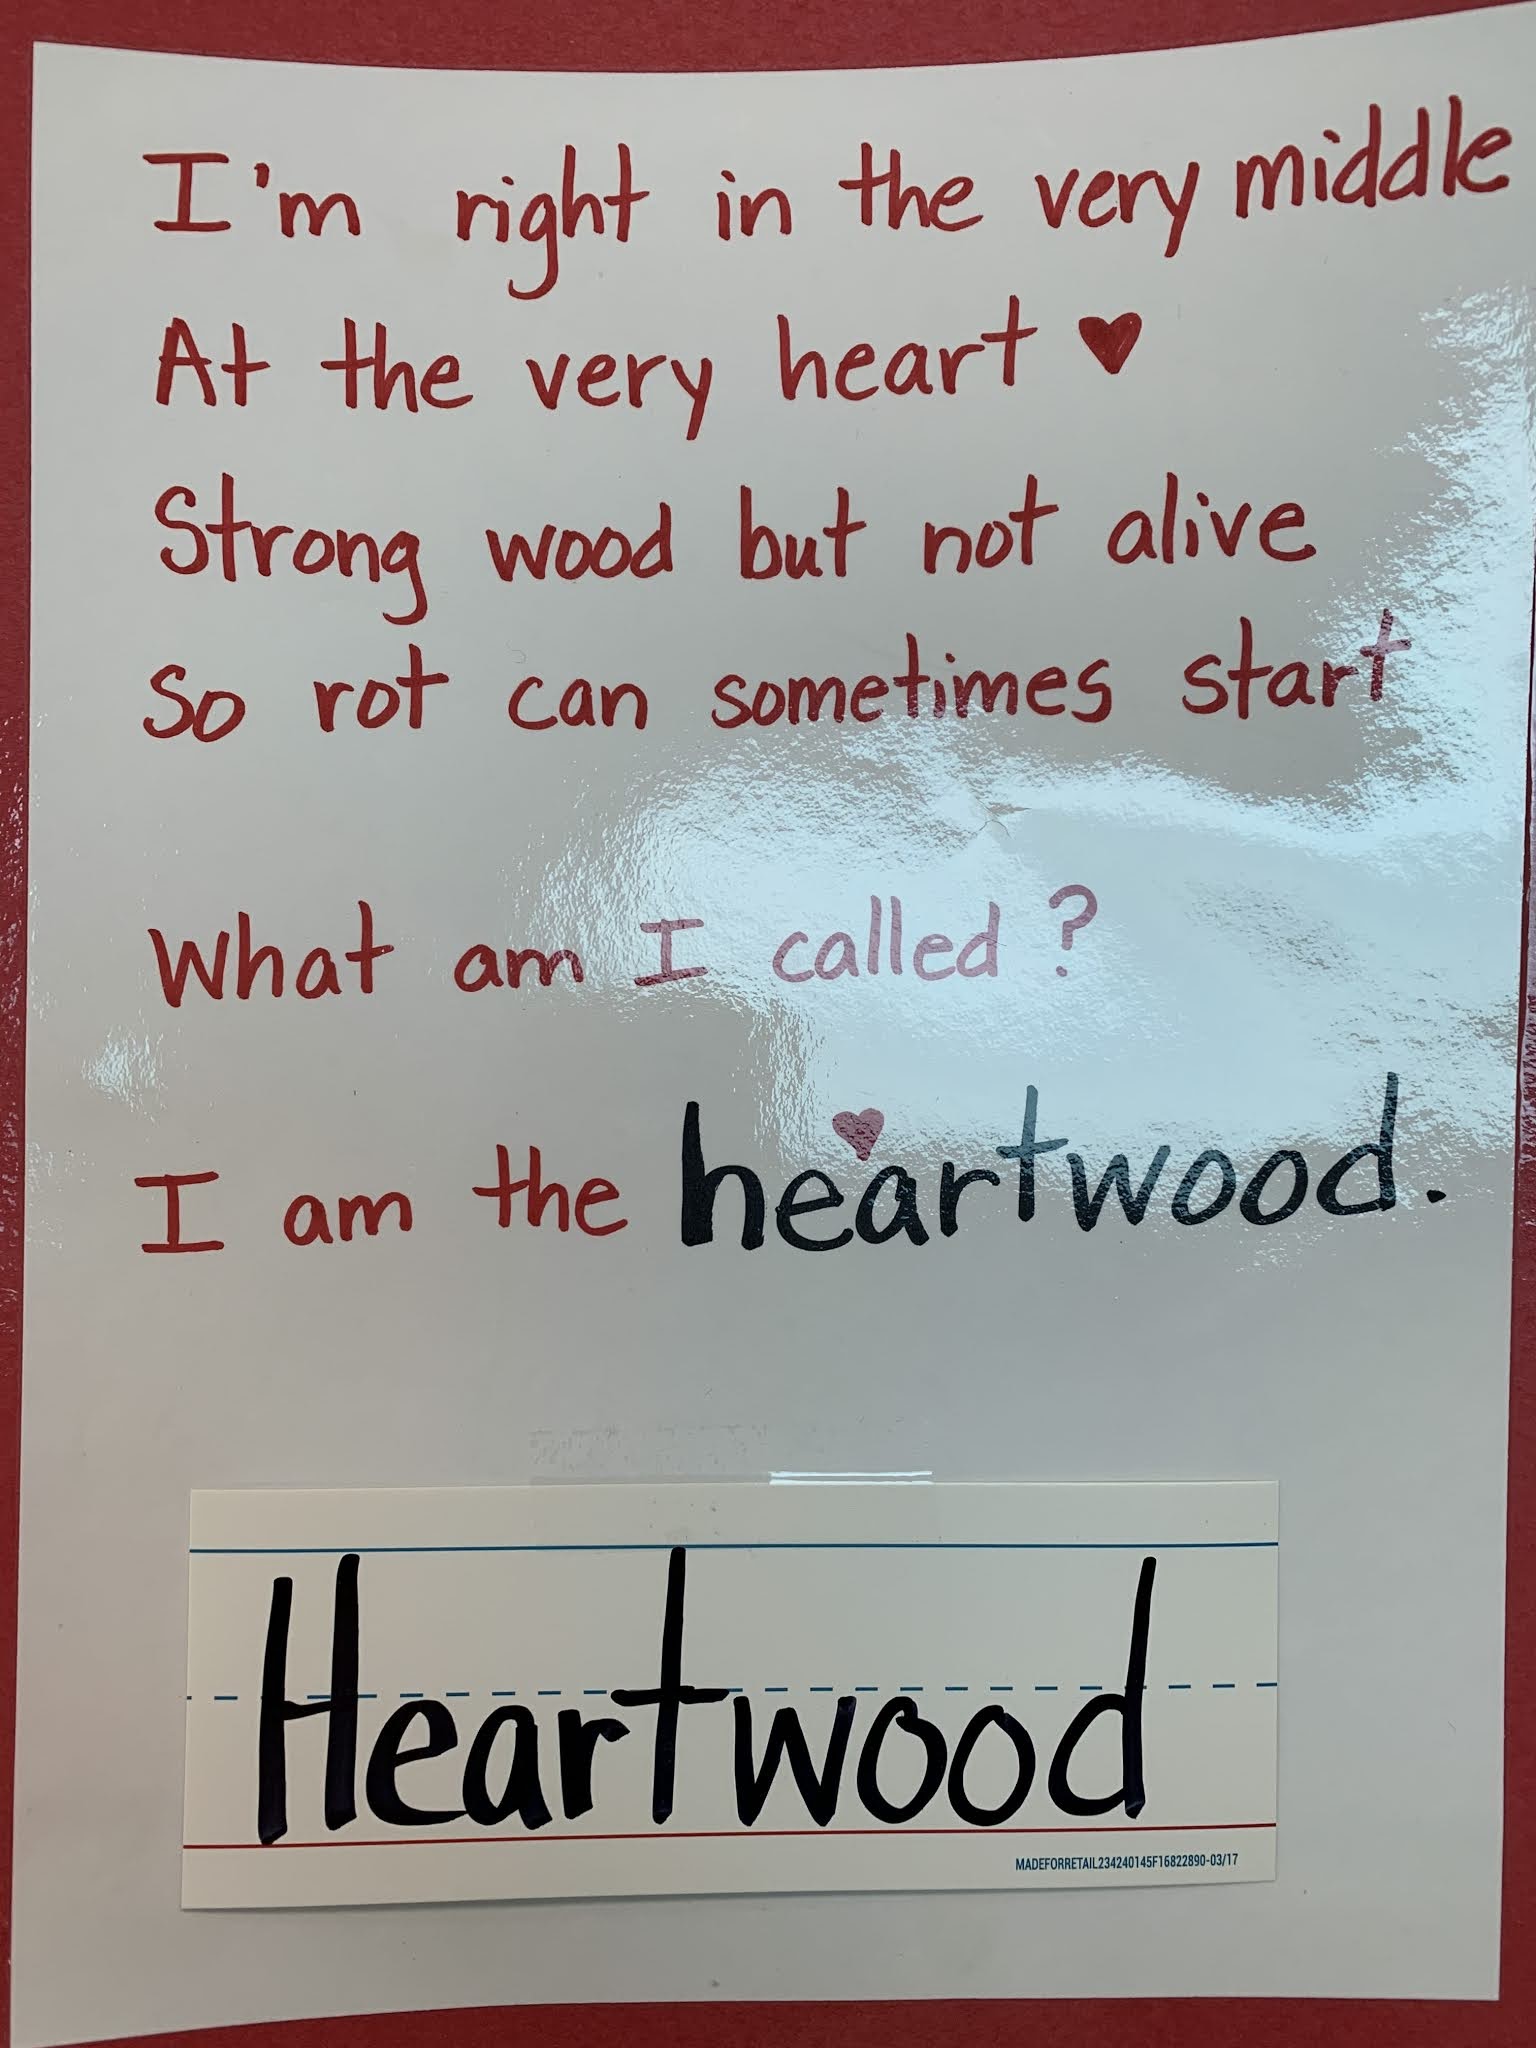 I'm right in the very middle
At the very heart ♥
Strong wood but not alive
So rot can sometimes start
What am I called?
I am the heartwood.
Heartwood
MADEFORRETAIL234240145F16822890-03/17